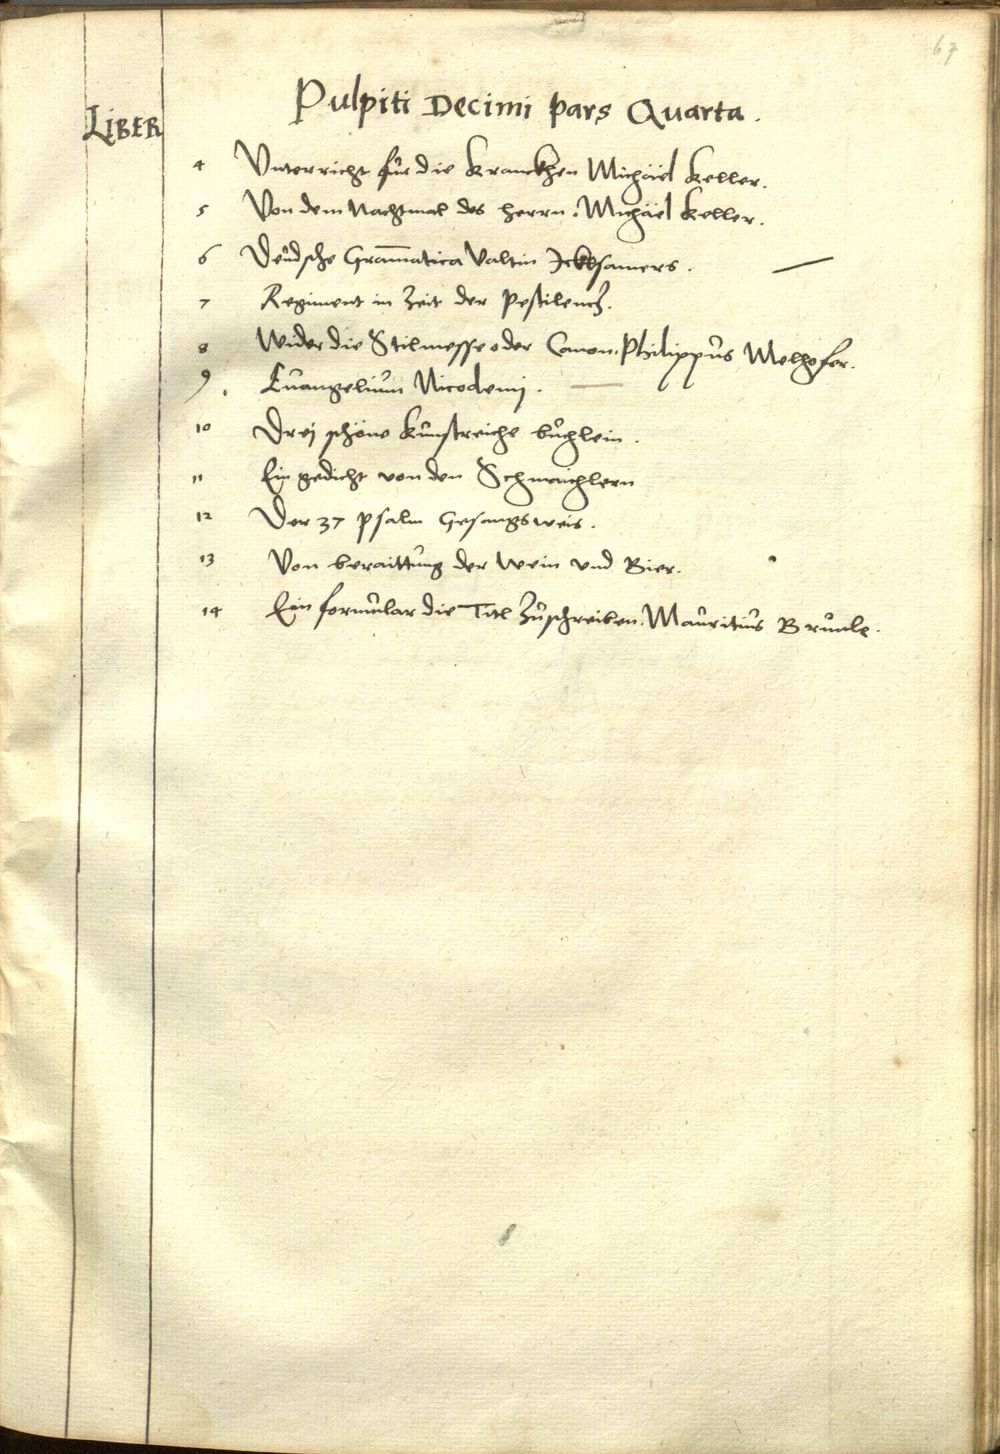 67
Pulpiti Decimi pars Quarta.
LIBER
4 Vnterricht für die Kranckhen Michäel Keller.
5 Von dem Nachtmal des herrn. Michäel Keller.
6 Deüdsche Gram̅atica Valtin Ickelsamers.
7 Regiment in Zeit der Pestilentz.
8 Wider die Stilmesse oder Canon. Philippus Melhofer.
9. Euangelium Nicodemi.
10 Drej schöne kunstreiche büchlein.
11 Ein gedicht von den Schmaichlern
12 Der 37 psalm Gesangsweis.
13 Von beraittung der Wein vnd Bier.
14 Ein formular die Titl Zuschreiben. Mauritius Brunle.